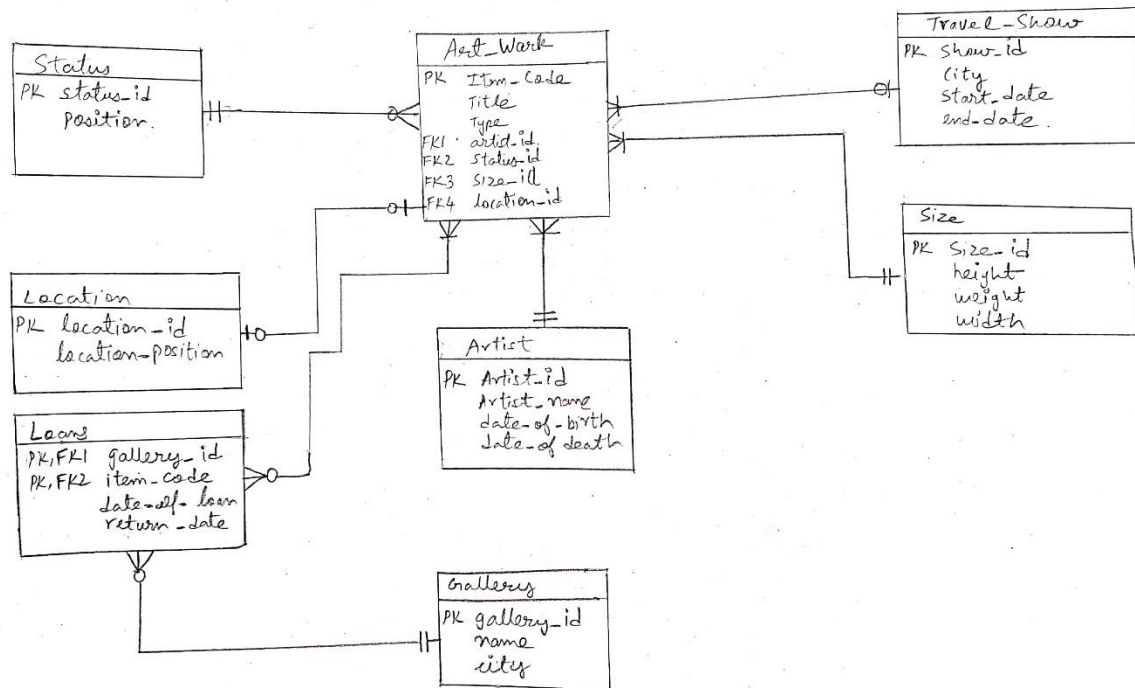 Status
PK status_id
position.
Art_Work
PK Item_Code
Title
Type
FK1 artist_id.
FK2 status_id
FK3 size_id
FK4 location_id
Travel_Show
PK show_id
city
start_date
end-date.
Size
PK size_id
height
weight
width
Location
PK location_id
location-position
Artist
PK Artist_id
Artist_name
date-of-birth
date-of death
Loans
PK,FK1 gallery_id
PK,FK2 item-code
date-of-loan
return-date
Gallery
PK gallery_id
name
city